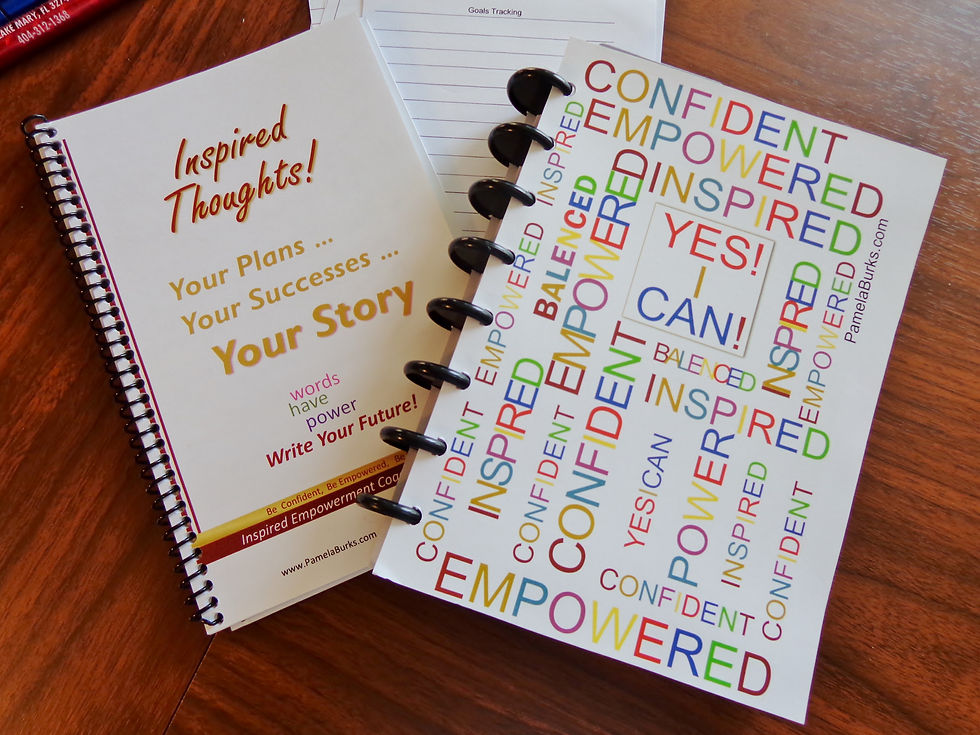 LAKE MARY, FL
404-312-1368
Goals Tracking
Inspired
Thoughts!
Your Plans ...
Your Successes ...
Your Story
words
have
power
Write Your Future!
Be Confident, Be Empowered, Be
Inspired Empowerment
www.PamelaBurks.com
CONFIDENT
EMPOWERED
INSPIRED
INSPIRED
BALENCED
EMPOWERED
EMPOWERED
YES!
I
CAN!
PamelaBurks.com
BALENCED
INSPIRED
INSPIRED
EMPOWERED
CONFIDENT
INSPIRED
CONFIDENT
CONFIDENT
YESICAN
POWER
INSPIRED
CONFIDENT
CONFIDENT
EMPOWERED